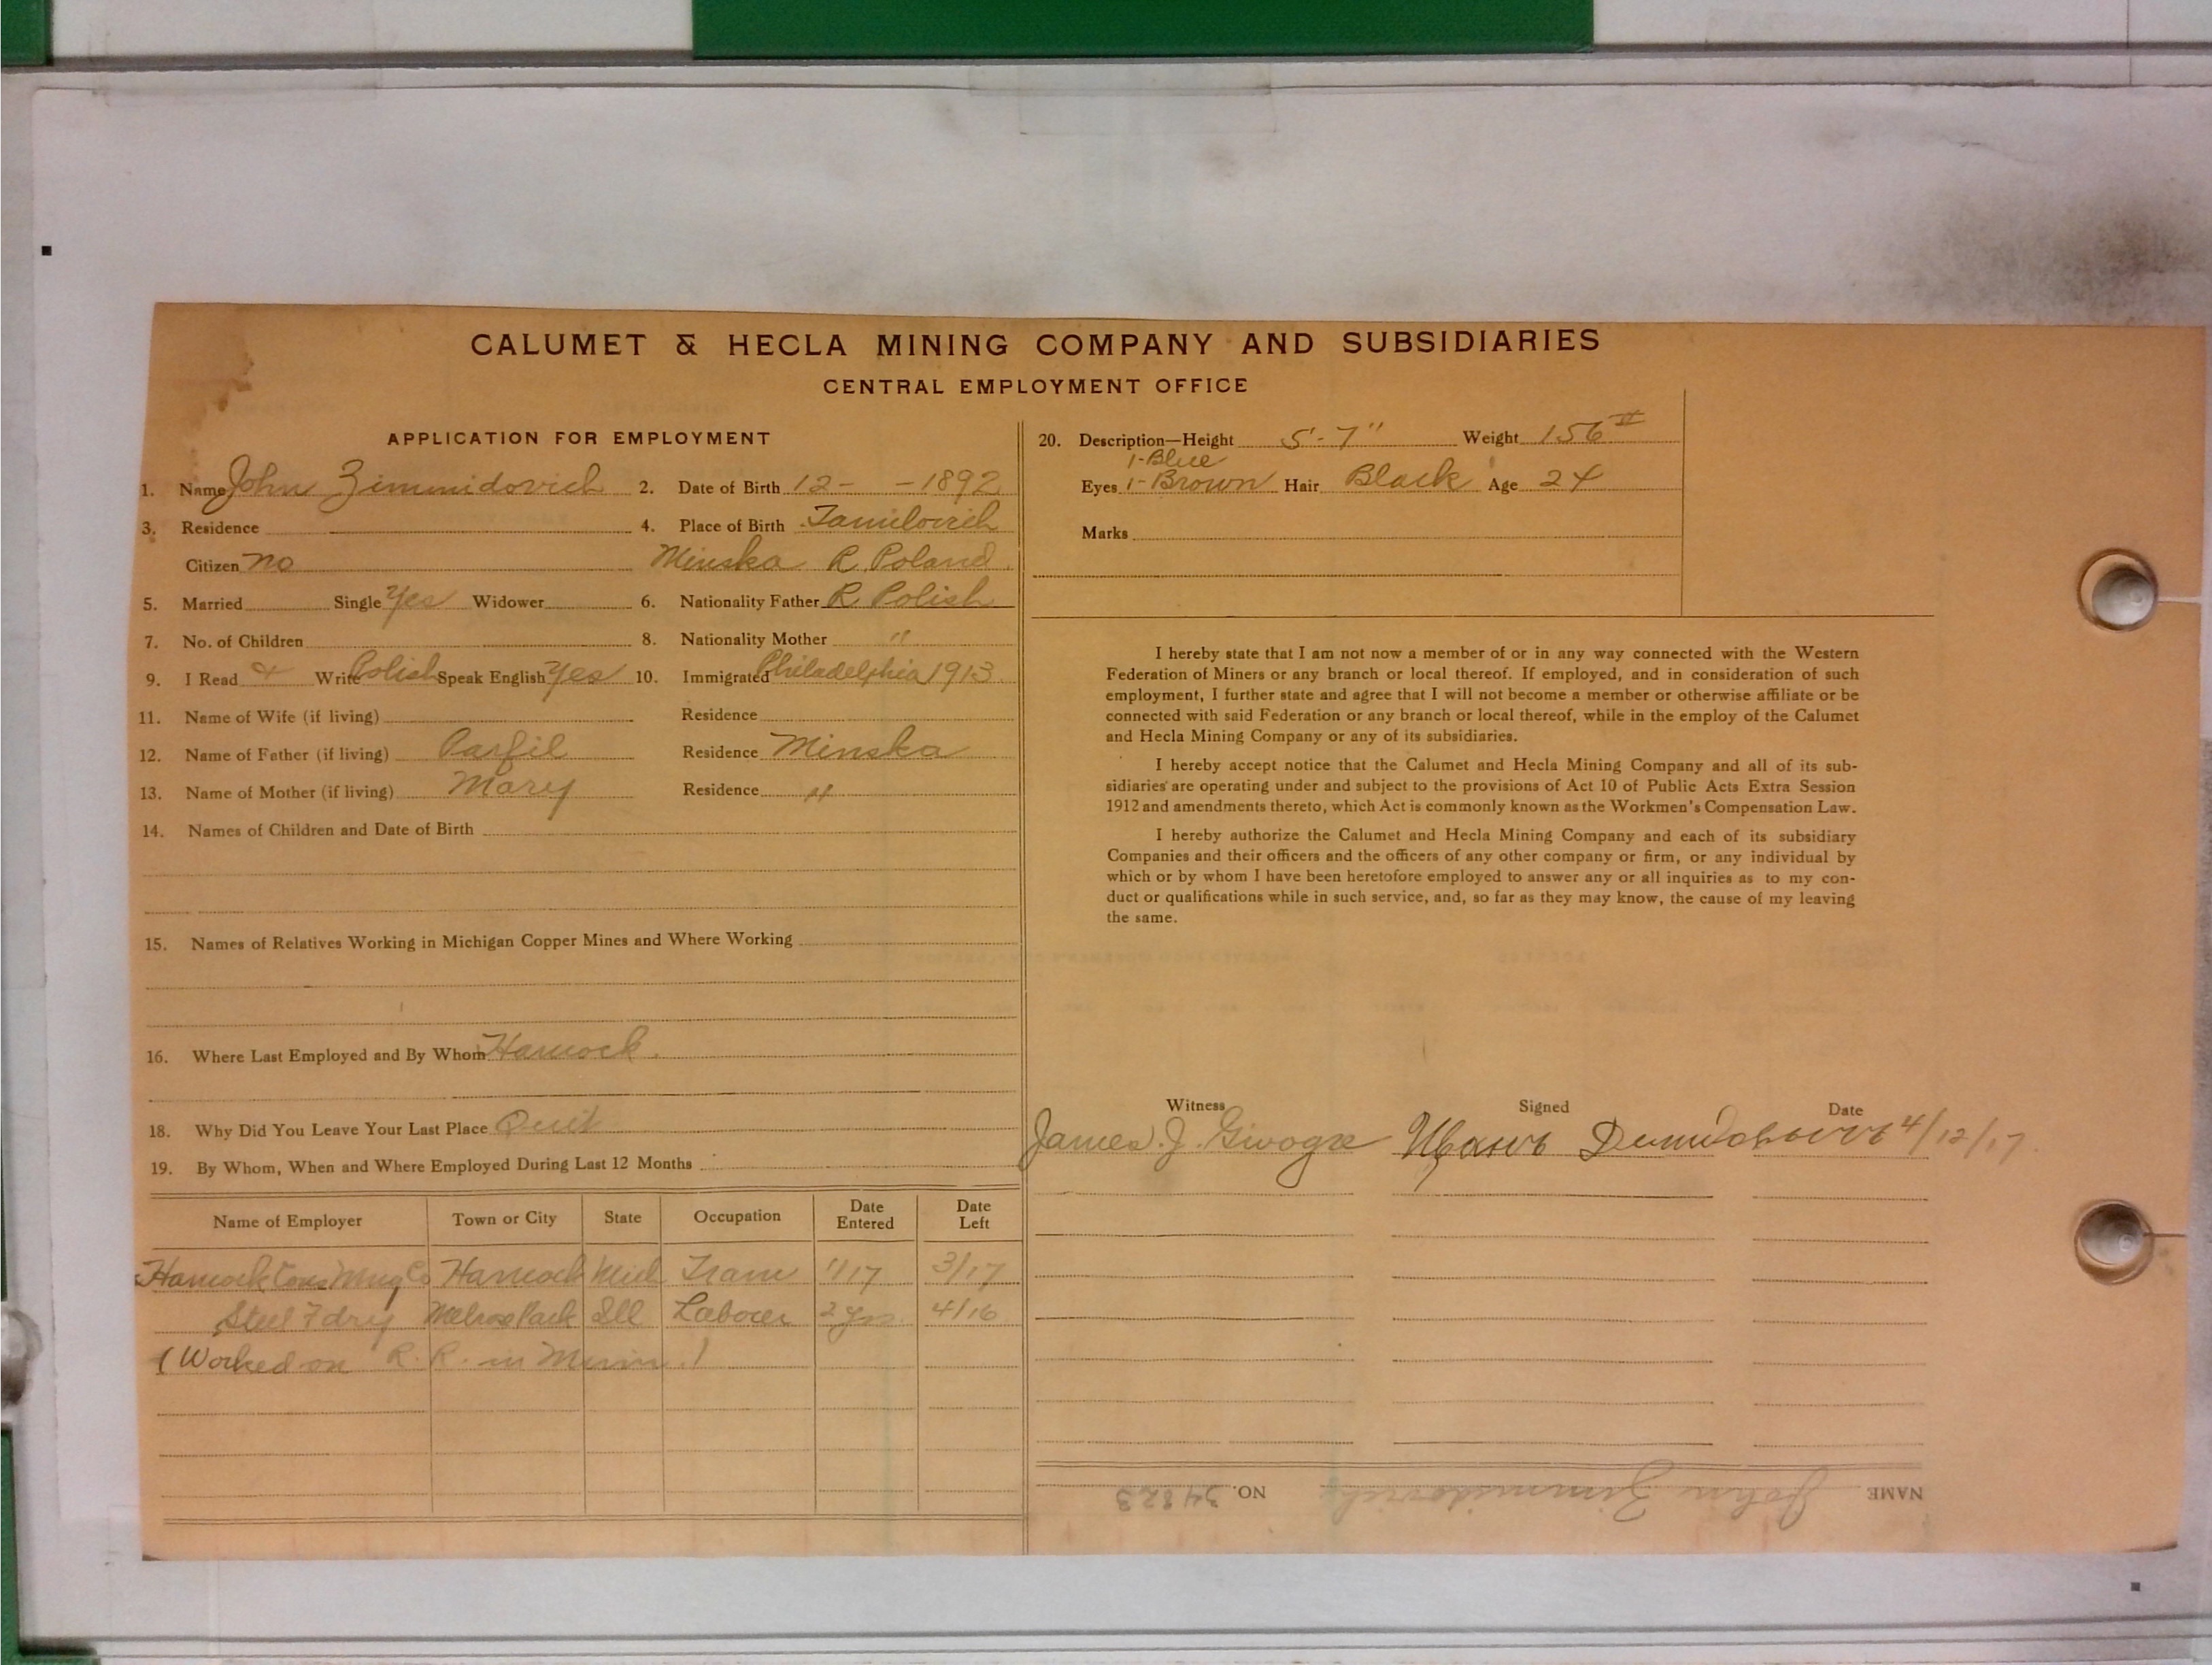 CALUMET & HECLA MINING COMPANY AND SUBSIDIARIES
CENTRAL EMPLOYMENT OFFICE
APPLICATION FOR EMPLOYMENT
1. Name John Zimmidovich 2. Date of Birth 12- -1892
3. Residence 4. Place of Birth
Citizen no Minska R. Poland
5. Married Single Yes Widower 6. Nationality Father R Polish
7. No. of Children 8. Nationality Mother "
9. I Read & Write Polish Speak English Yes 10. Immigrated Philadelphia 1913
11. Name of Wife (if living) Residence
12. Name of Father (if living) Parfil Residence Minska
13. Name of Mother (if living) Mary Residence "
14. Names of Children and Date of Birth
15. Names of Relatives Working in Michigan Copper Mines and Where Working
16. Where Last Employed and By Whom Hancock.
18. Why Did You Leave Your Last Place Quit
19. By Whom, When and Where Employed During Last 12 Months
Name of Employer Town or City State Occupation Date Entered Date Left
Hancock Cons Mng Co Hancock Mich Tram 1/17 3/17
Steel Fdry Melrose Park Ill Laborer 2 yrs. 4/16
(Worked on R.R. in Minn.)
20. Description—Height 5'-7" Weight 156 #
1-Blue
Eyes 1-Brown Hair Black Age 24
Marks
I hereby state that I am not now a member of or in any way connected with the Western
Federation of Miners or any branch or local thereof. If employed, and in consideration of such
employment, I further state and agree that I will not become a member or otherwise affiliate or be
connected with said Federation or any branch or local thereof, while in the employ of the Calumet
and Hecla Mining Company or any of its subsidiaries.
I hereby accept notice that the Calumet and Hecla Mining Company and all of its sub-
sidiaries are operating under and subject to the provisions of Act 10 of Public Acts Extra Session
1912 and amendments thereto, which Act is commonly known as the Workmen's Compensation Law.
I hereby authorize the Calumet and Hecla Mining Company and each of its subsidiary
Companies and their officers and the officers of any other company or firm, or any individual by
which or by whom I have been heretofore employed to answer any or all inquiries as to my con-
duct or qualifications while in such service, and, so far as they may know, the cause of my leaving
the same.
Witness Signed Date
James J. 4/12/17
NAME John Zimmidovich NO. 34823